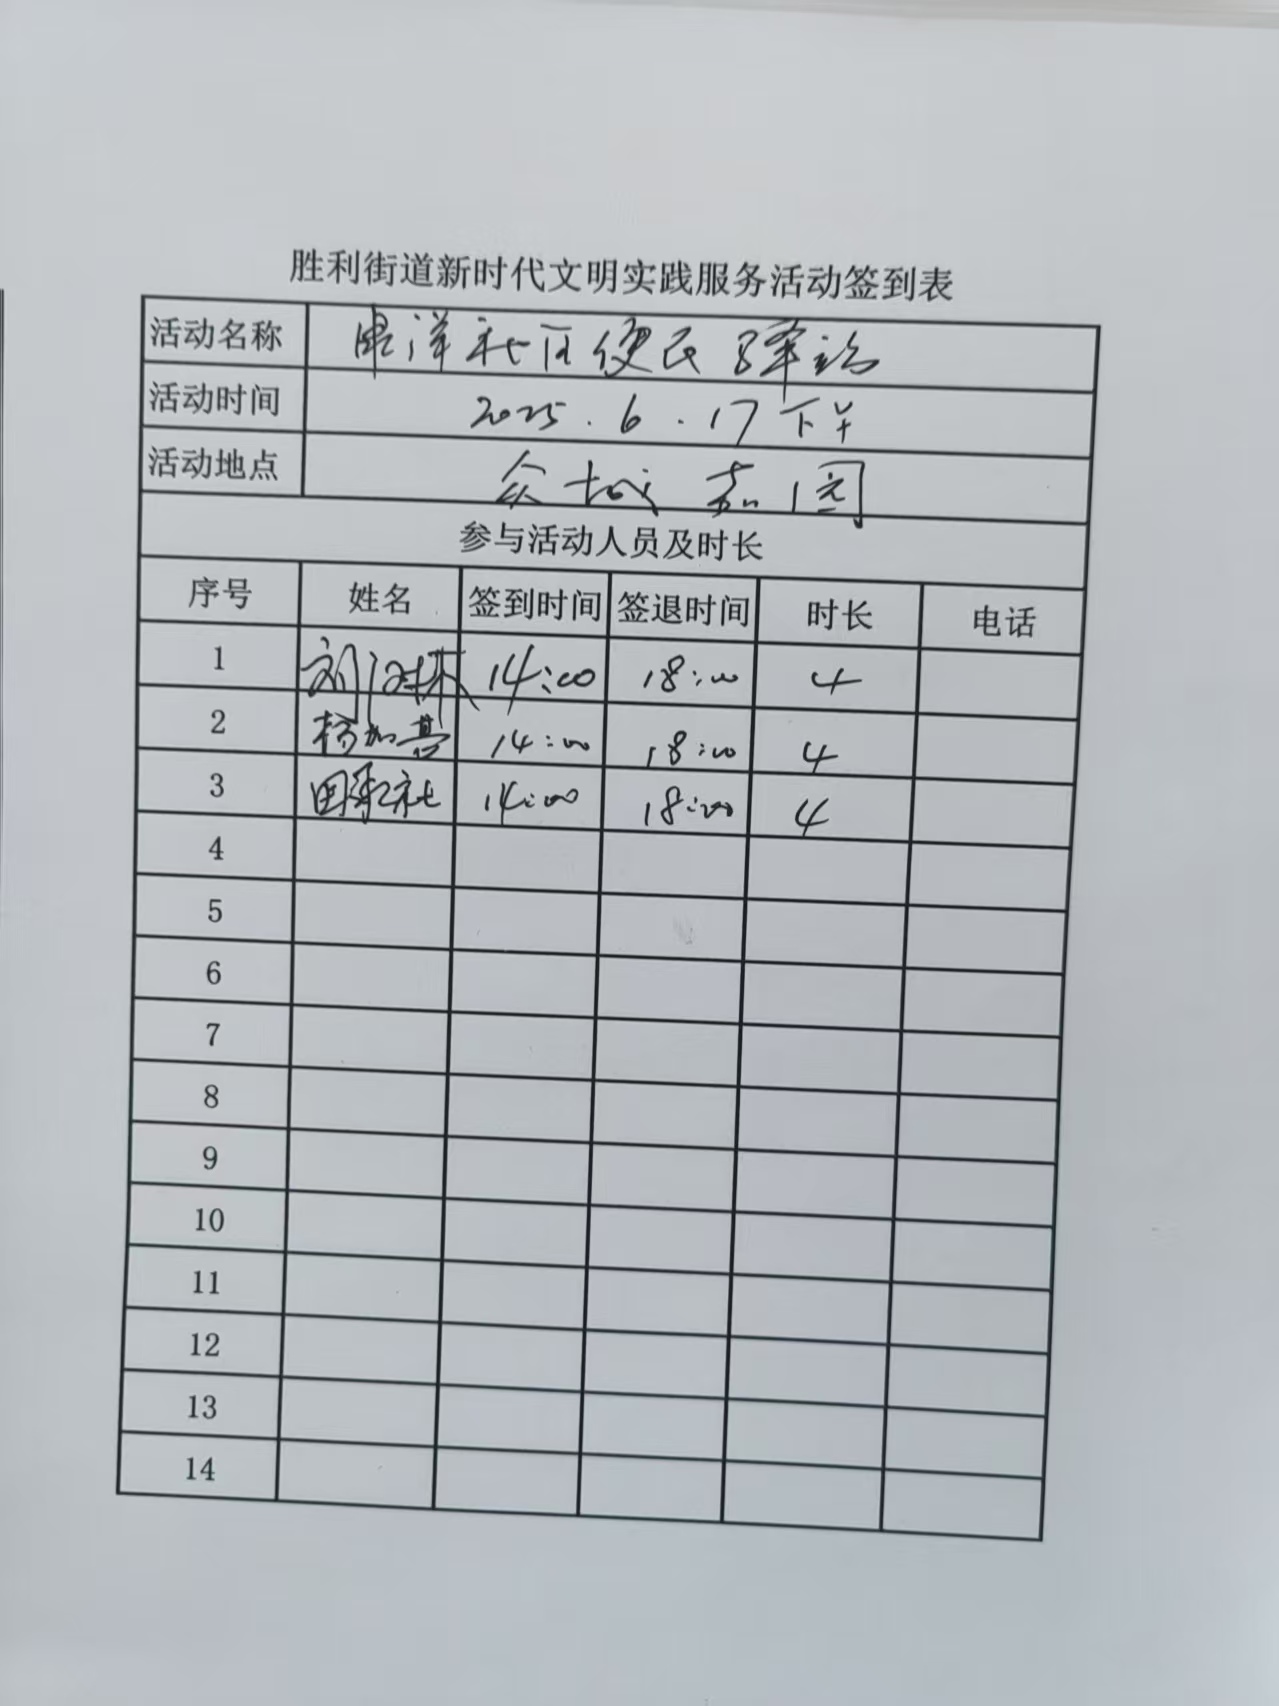 胜利街道新时代文明实践服务活动签到表
活动名称 东洋社区便民驿站
活动时间 2025.6.17 下午
活动地点 众城嘉园
参与活动人员及时长
序号 姓名 签到时间 签退时间 时长 电话
1 刘 14:00 18:00 4
2 杨 14:00 18:00 4
3 田 14:00 18:00 4
4
5
6
7
8
9
10
11
12
13
14